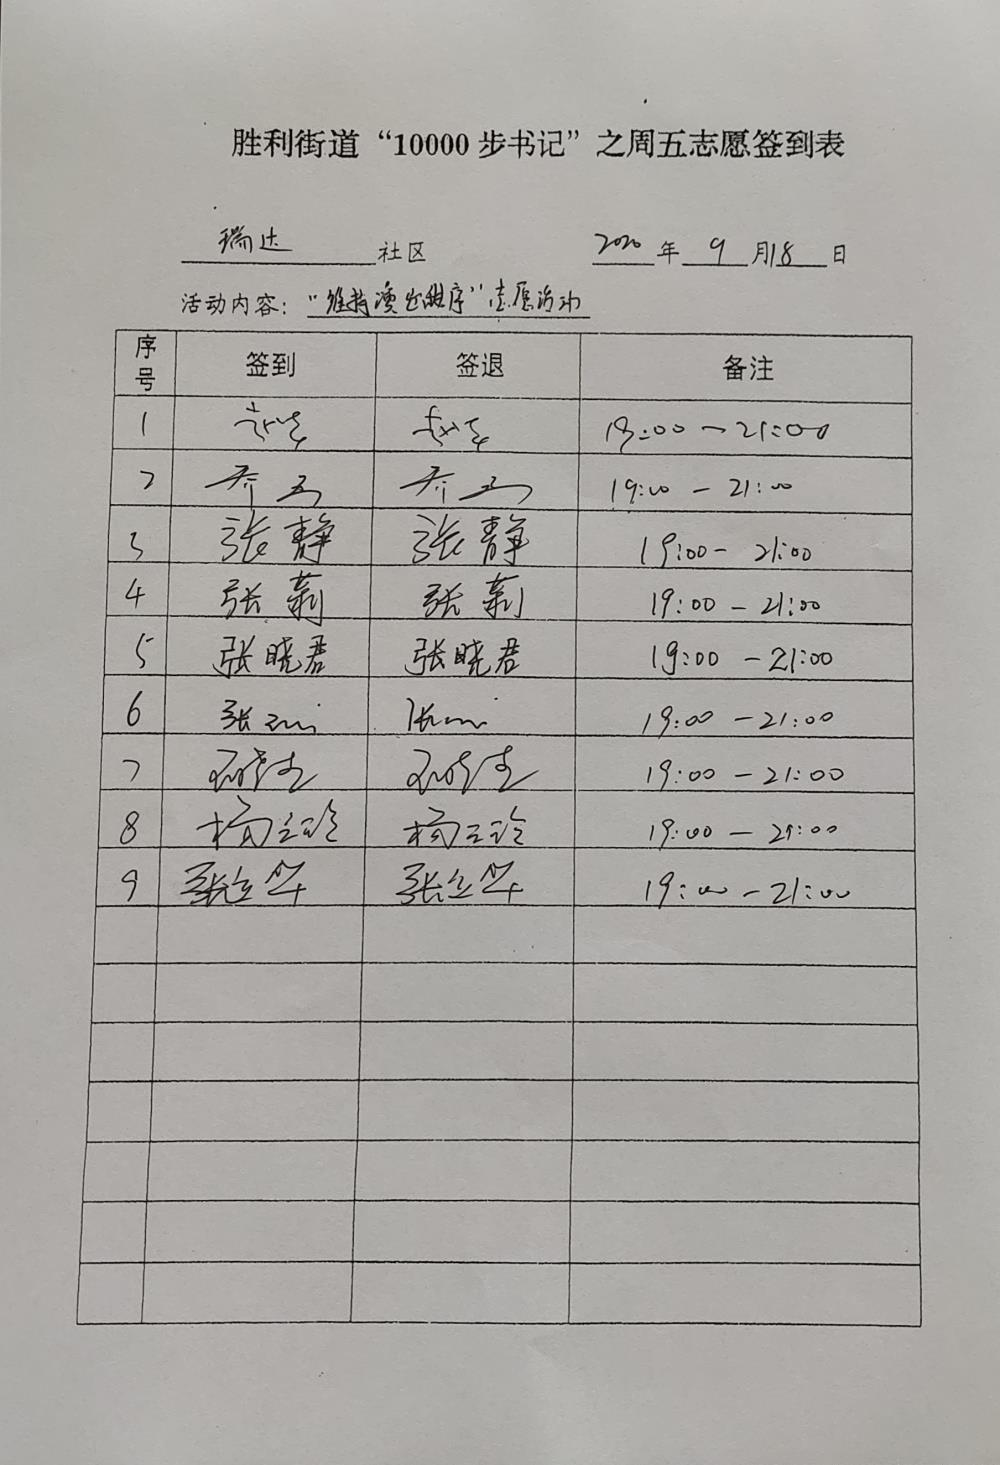 胜利街道“10000步书记”之周五志愿签到表
瑞达 社区 2020 年 9 月 18 日
活动内容：“维持演出秩序”志愿活动
序号 签到 签退 备注
1 19:00－21:00
2 乔 乔 19:00－21:00
3 张静 张静 19:00－21:00
4 张莉 张莉 19:00－21:00
5 张晓君 张晓君 19:00－21:00
6 张 张 19:00－21:00
7 19:00－21:00
8 杨立玲 杨立玲 19:00－21:00
9 张立华 张立华 19:00－21:00